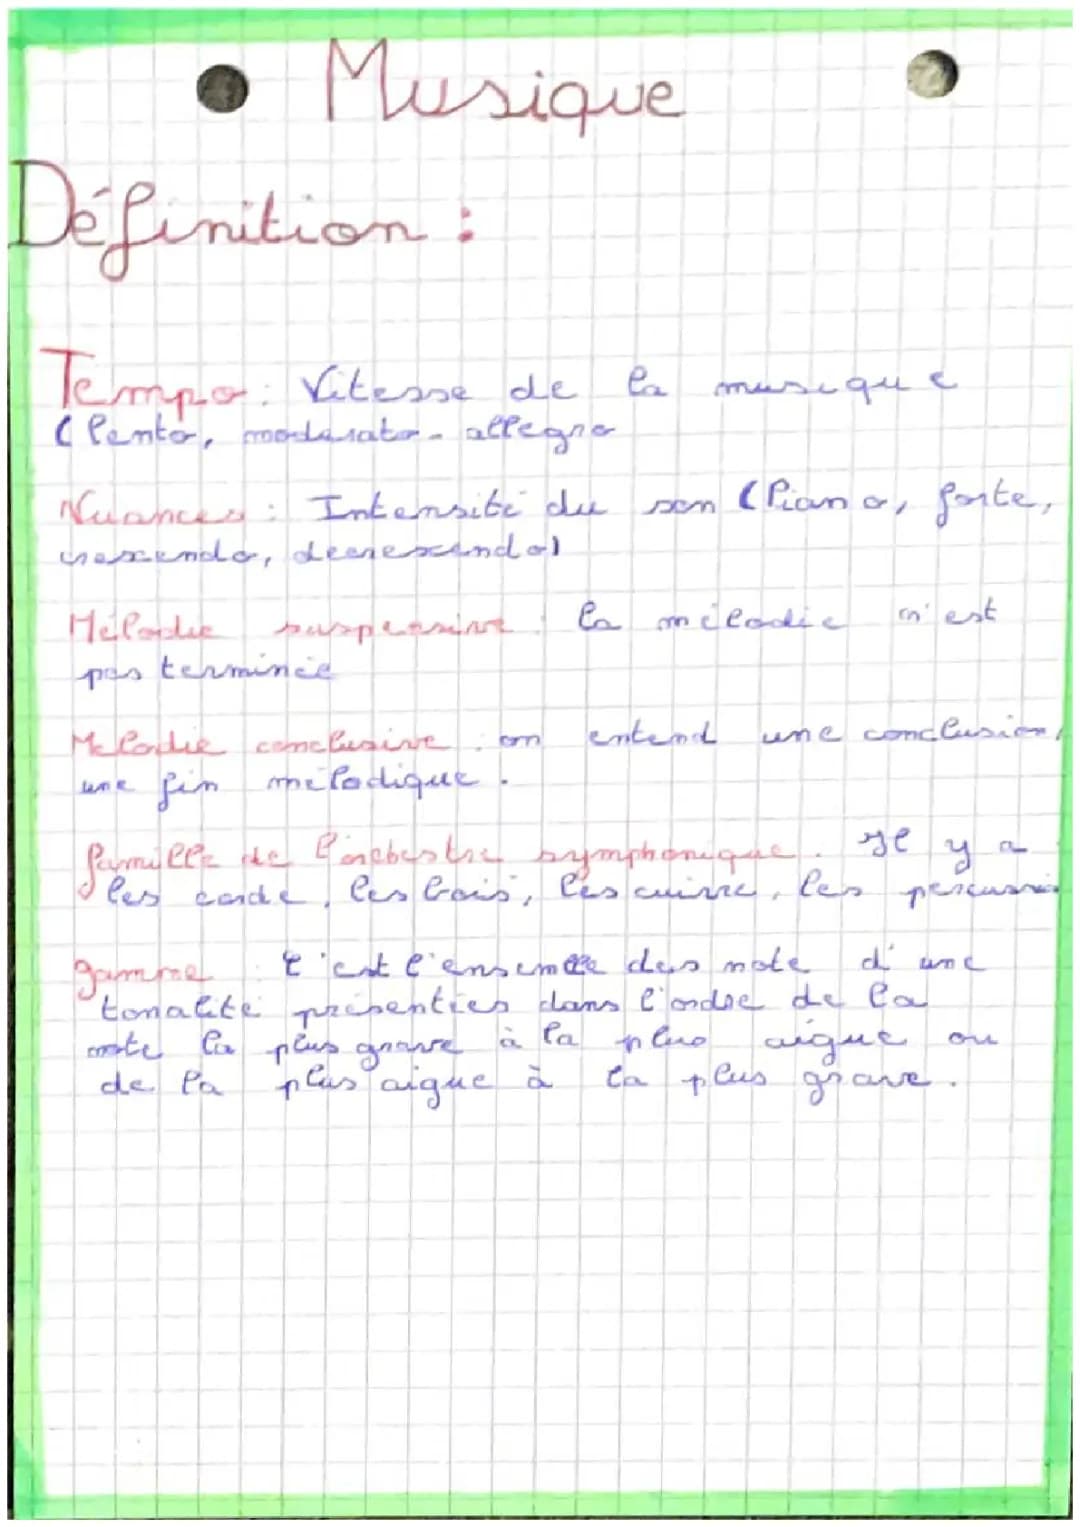 Musique
Définition :
Tempo : Vitesse de la musique
(lento, moderato - allegro
Nuances : Intensité du son (Piano, forte,
crescendo, decrescendo)
Mélodie suspensive : la mélodie n'est
pas terminée
Melodie conclusive : on entend une conclusion,
une fin mélodique.
famille de l'orchestre symphonique. Il y a
les corde, les bois, les cuivre, les percussi
gamme : C'est l'ensemble des note d'une
tonalité présentées dans l'ordre de la
note la plus grave à la plus aigue ou
de la plus aigue à la plus grave.